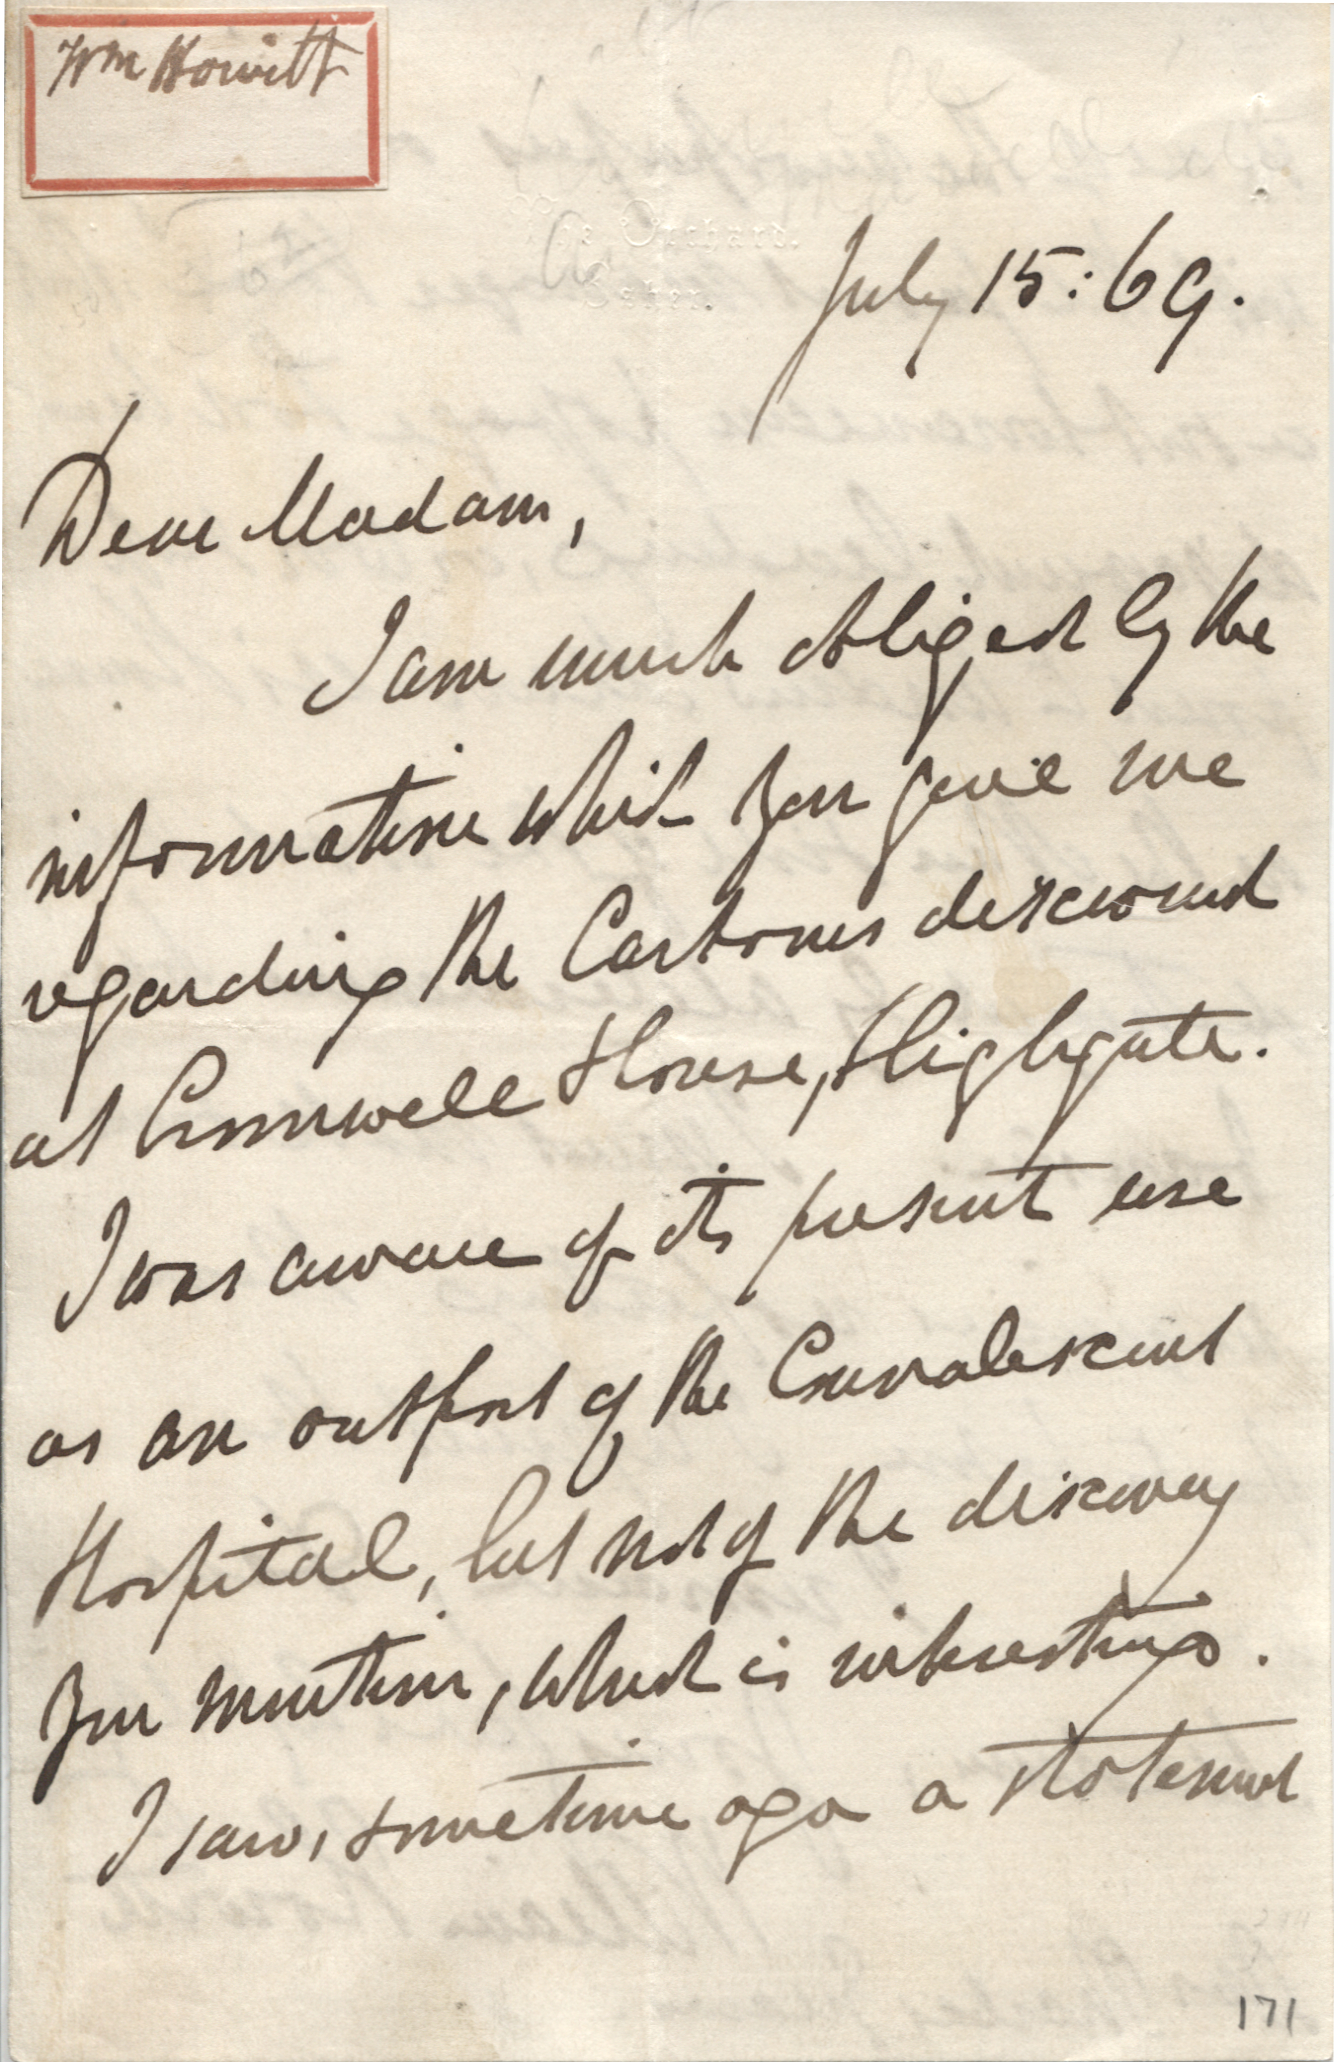 Wm Howitt
The Orchard.
Esher.
July 15: 69.
Dear Madam,
I am much obliged by the
information which you gave me
regarding the Cartoons discovered
at Cromwell House, Highgate.
I was aware of its present use
as an outpost of the Convalescent
Hospital, but not of the discovery
you mention, which is interesting.
I saw, sometime ago a statement
171